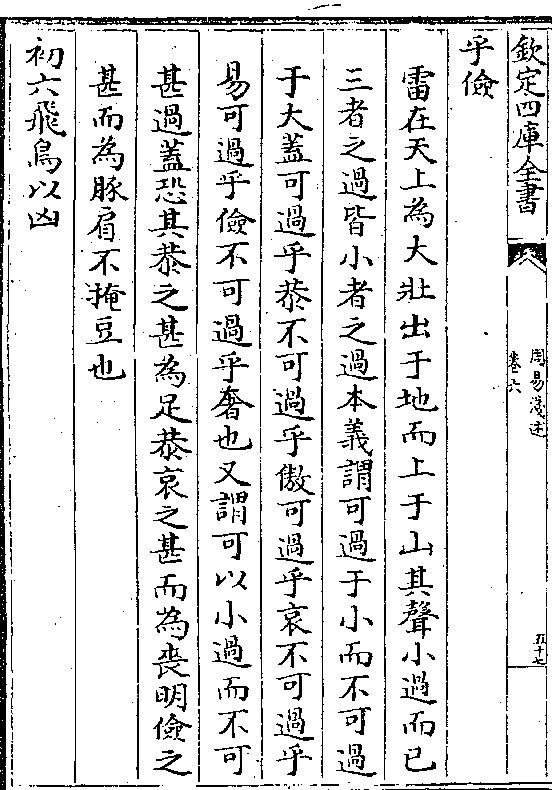 欽定四庫全書
周易淺述
卷六
五十七
乎儉
雷在天上為大壯出于地而上于山其聲小過而已
三者之過皆小者之過本義謂可過于小而不可過
于大蓋可過乎恭不可過乎傲可過乎哀不可過乎
易可過乎儉不可過乎奢也又謂可以小過而不可
甚過蓋恐其恭之甚為足恭哀之甚而為喪明儉之
甚而為豚肩不掩豆也
初六飛鳥以凶